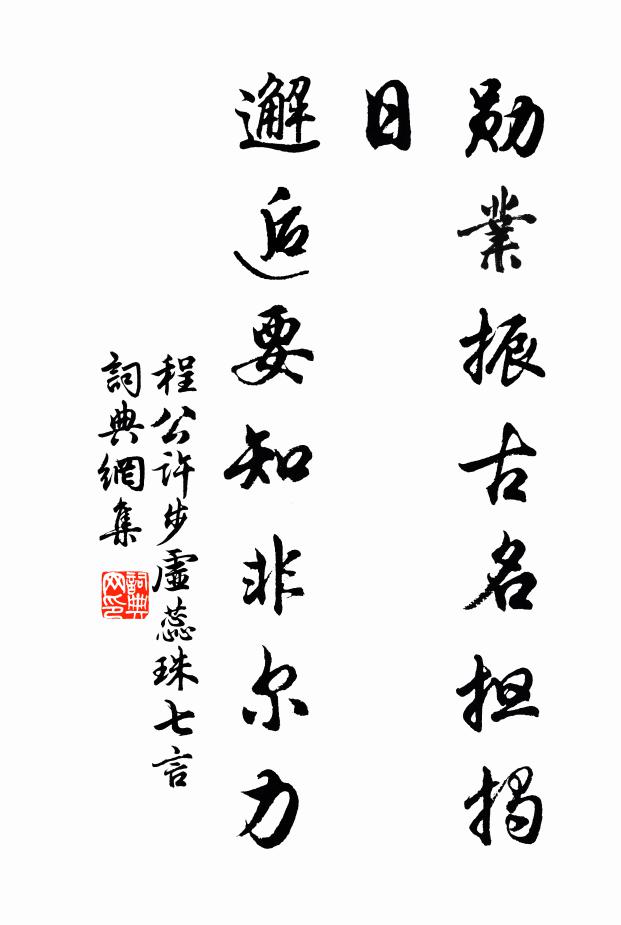 勛業振古名担揭
日
邂逅要知非尔力
程公許步虛蕊珠七言
詞典網集
詞典网印